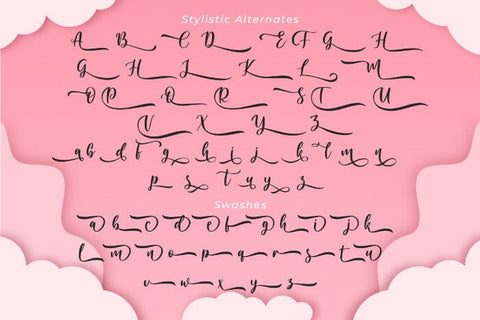 Stylistic Alternates
A B C D E F G H
G H J K L M
O P Q R S T U
V X Y Z
a b d f g h i j k l m n
p s t y y z
Swashes
a b D d b g h D k
l m D o p q r s t u
v w x y z